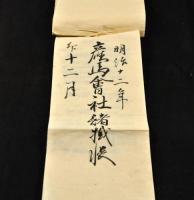 明治十二年
産馬會社諸
十二月